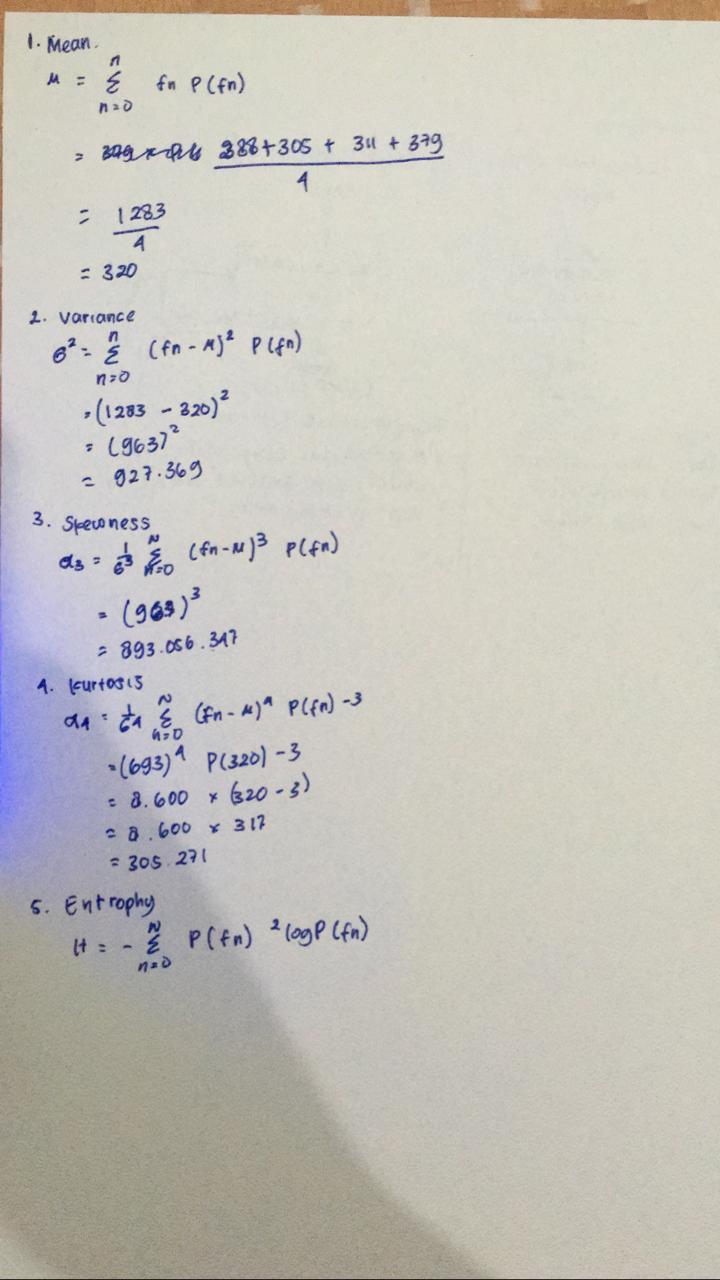 1. Mean.
μ = n Σ n=0 fn P(fn)
= 288+305 + 311 + 379 / 4
= 1283 / 4
= 320
2. Variance
σ² = n Σ n=0 (fn - μ)² P(fn)
= (1283 - 320)²
= (963)²
= 927.369
3. Skewness
α3 = 1/σ³ N Σ n=0 (fn-μ)³ P(fn)
= (963)³
= 893.056.347
4. Kurtosis
α4 = 1/σ4 N Σ n=0 (fn - μ)⁴ P(fn) -3
= (693)⁴ P(320) - 3
= 8.600 × (320 - 3)
= 8.600 × 317
= 305.271
5. Entrophy
H = - N Σ n=0 P(fn) ²log P(fn)